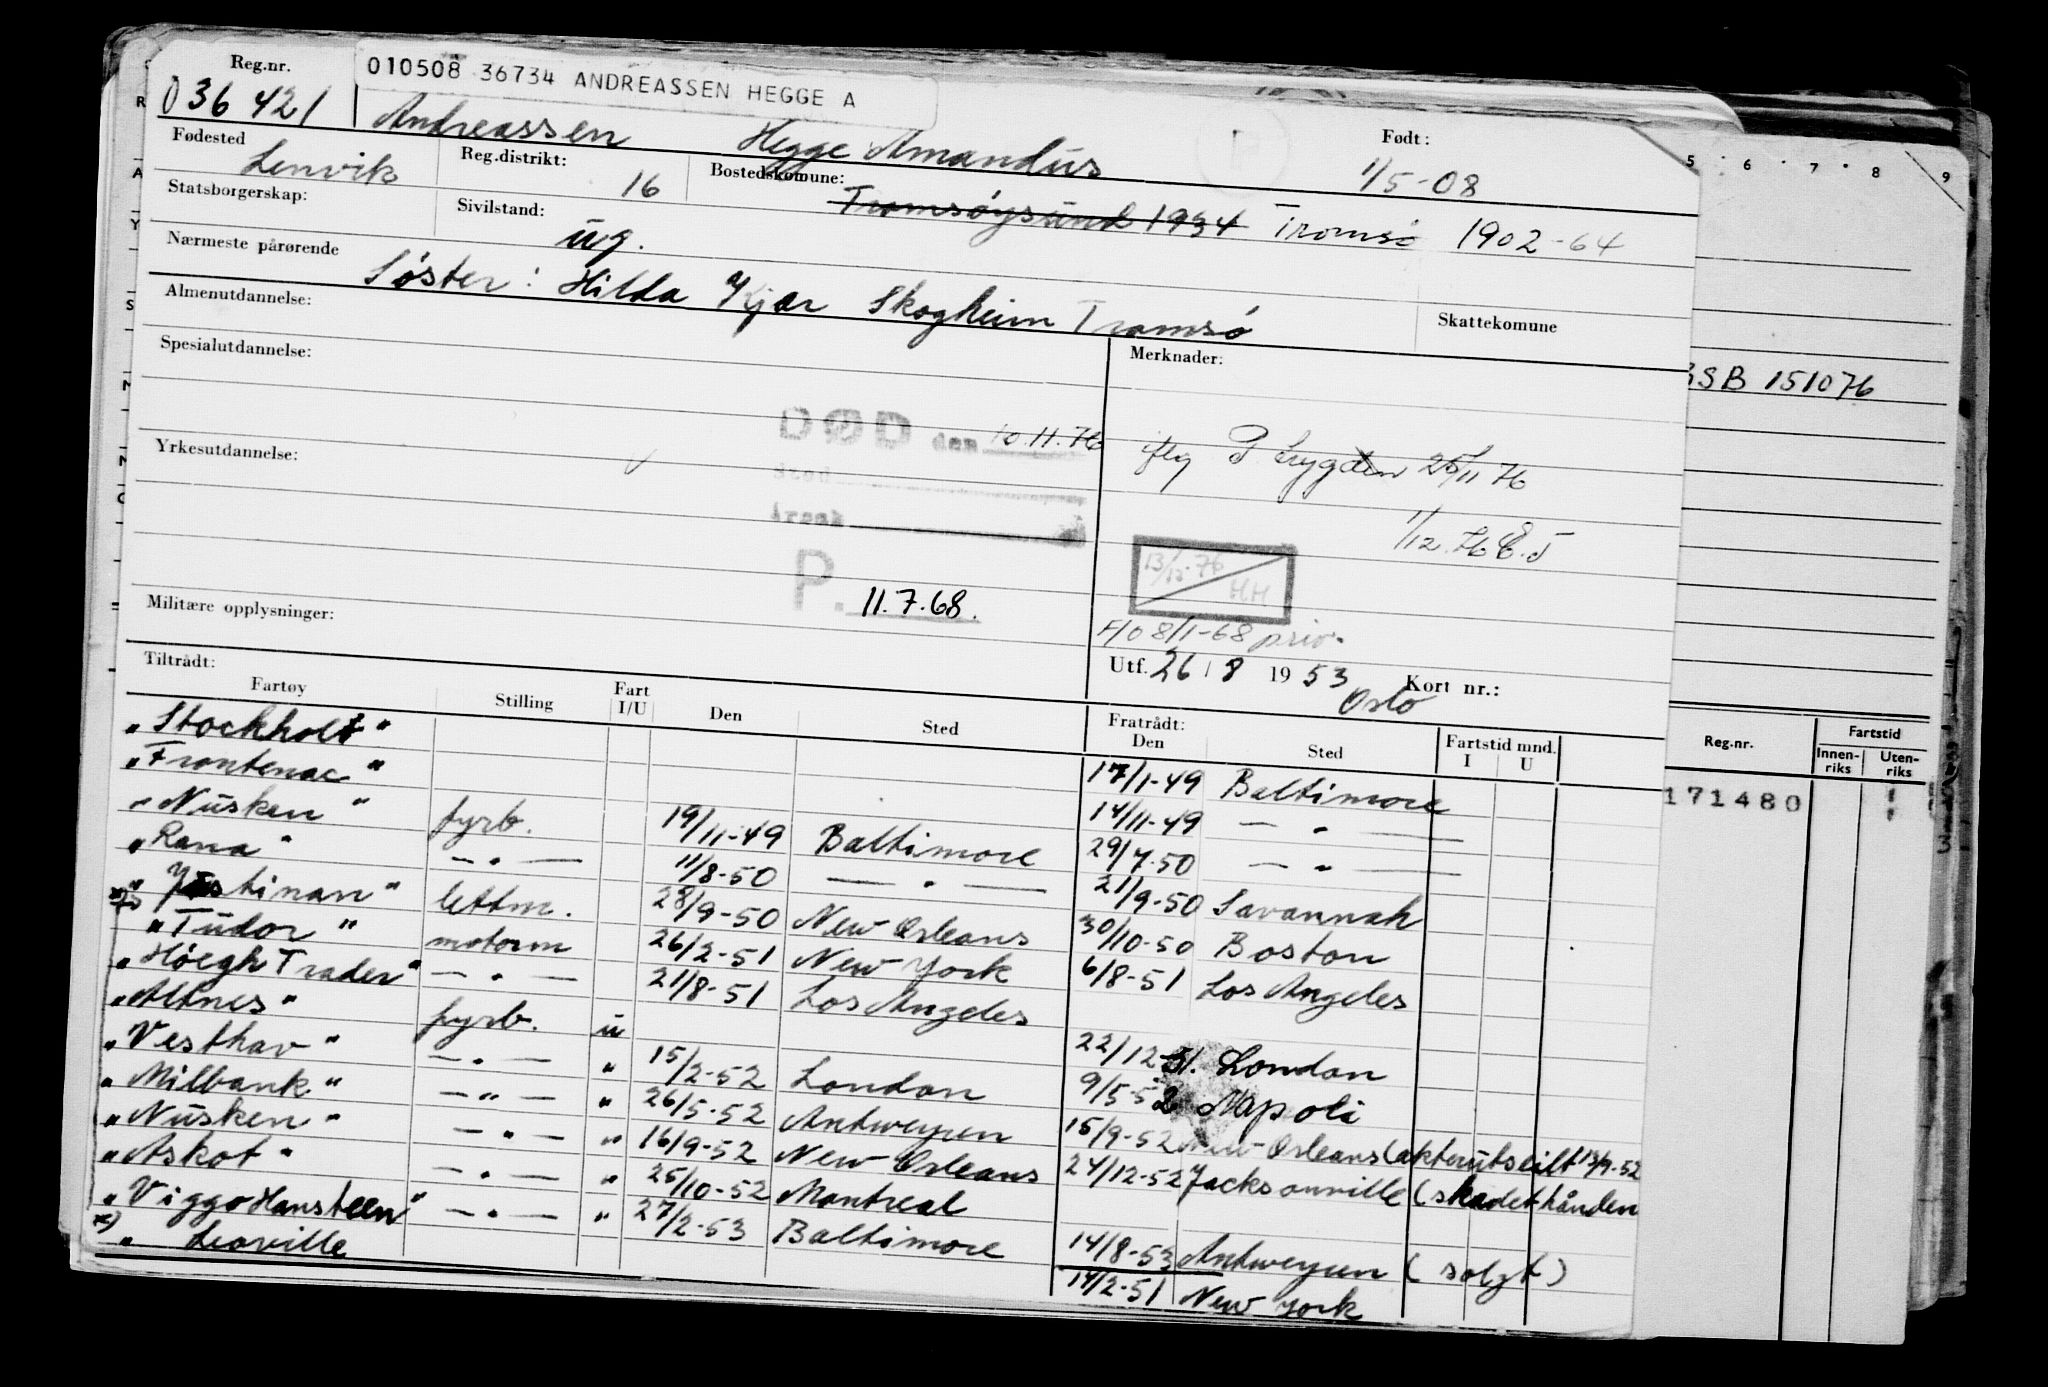 Reg.nr.
010508 36734 ANDREASSEN HEGGE A
036421 Andreassen Hegge Amandus
Født: 1/5-08
Fødested Lenvik
Reg.distrikt: 16
Bostedskomune: Tromsøysund 1934 Tromsø 1902-64
Statsborgerskap:
Sivilstand: ug.
Nærmeste pårørende Søster: Hilda Kjær Skogheim Tromsø
Almenutdannelse:
Skattekomune
Spesialutdannelse:
Merknader:
SB 151076
DØD den 10.11.76
sted
årsak
iflg P. Lygden 25/11 76
1/12.76 E.J
Yrkesutdannelse:
13/12-76 HH
P. 11.7.68.
Militære opplysninger:
F/O 8/1-68 priv.
Utf. 26/8 1953 Kort nr.:
Oslo
Tiltrådt:
Fratrådt:
Fartøy Stilling Fart I/U Den Sted Den Sted Fartstid mnd. I U
Reg.nr. Fartstid Innen-riks Uten-riks
171480
"Stockholt" 17/1-49 Baltimore
"Frontenac" 14/11-49 — " —
"Nusken" fyrb. 19/11-49 Baltimore 29/7-50 — " —
"Rana" — " — 11/8-50 — " — 21/9-50 Savannah
"Justinan" lettm. 28/9-50 New Orleans 30/10-50 Boston
*) "Tudor" motorm 26/2-51 New York 6/8-51 Los Angeles
"Höegh Trader" — " — 21/8-51 Los Angeles
"Altnes" fyrb. u 22/12-51. London
"Vesthav" — " — " 15/2-52 London 9/5-52 Napoli
"Milbank" — " — " 26/5-52 Antwerpen 15/9-52 New Orleans (akterutseilt 13/9-52
"Nusken" — " — " 16/9-52 New Orleans 24/12-52 Jacksonville (skadet hånden
"Askot" — " — " 25/10-52 Montreal
"Viggo Hansteen" — " — " 27/2-53 Baltimore 14/8-53 Antwerpen (solgt)
*) " Leoville 14/2-51 New York